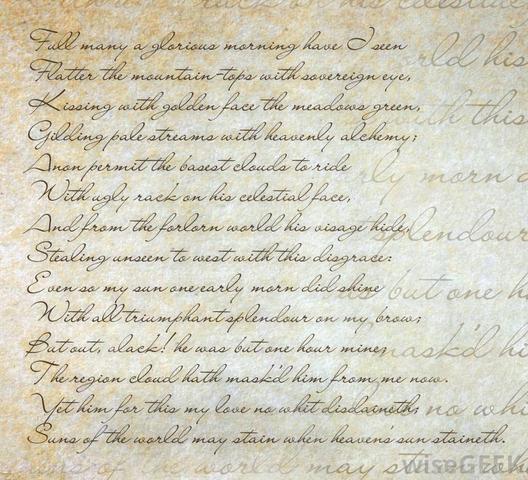 rack on his celestial
Full many a glorious morning have I seen
Flatter the mountain-tops with sovereign eye,
Kissing with golden face the meadows green,
Gilding pale streams with heavenly alchemy;
Anon permit the basest clouds to ride
With ugly rack on his celestial face,
And from the forlorn world his visage hide,
Stealing unseen to west with this disgrace:
Even so my sun one early morn did shine
With all triumphant splendour on my brow;
But out, alack! he was but one hour mine;
The region cloud hath mask'd him from me now.
Yet him for this my love no whit disdaineth;
Suns of the world may stain when heaven's sun staineth.
world his
with this
rly morn d
splendour
but one h
mask'd hi
no whi
suns of the world may stain wh
wiseGEEK